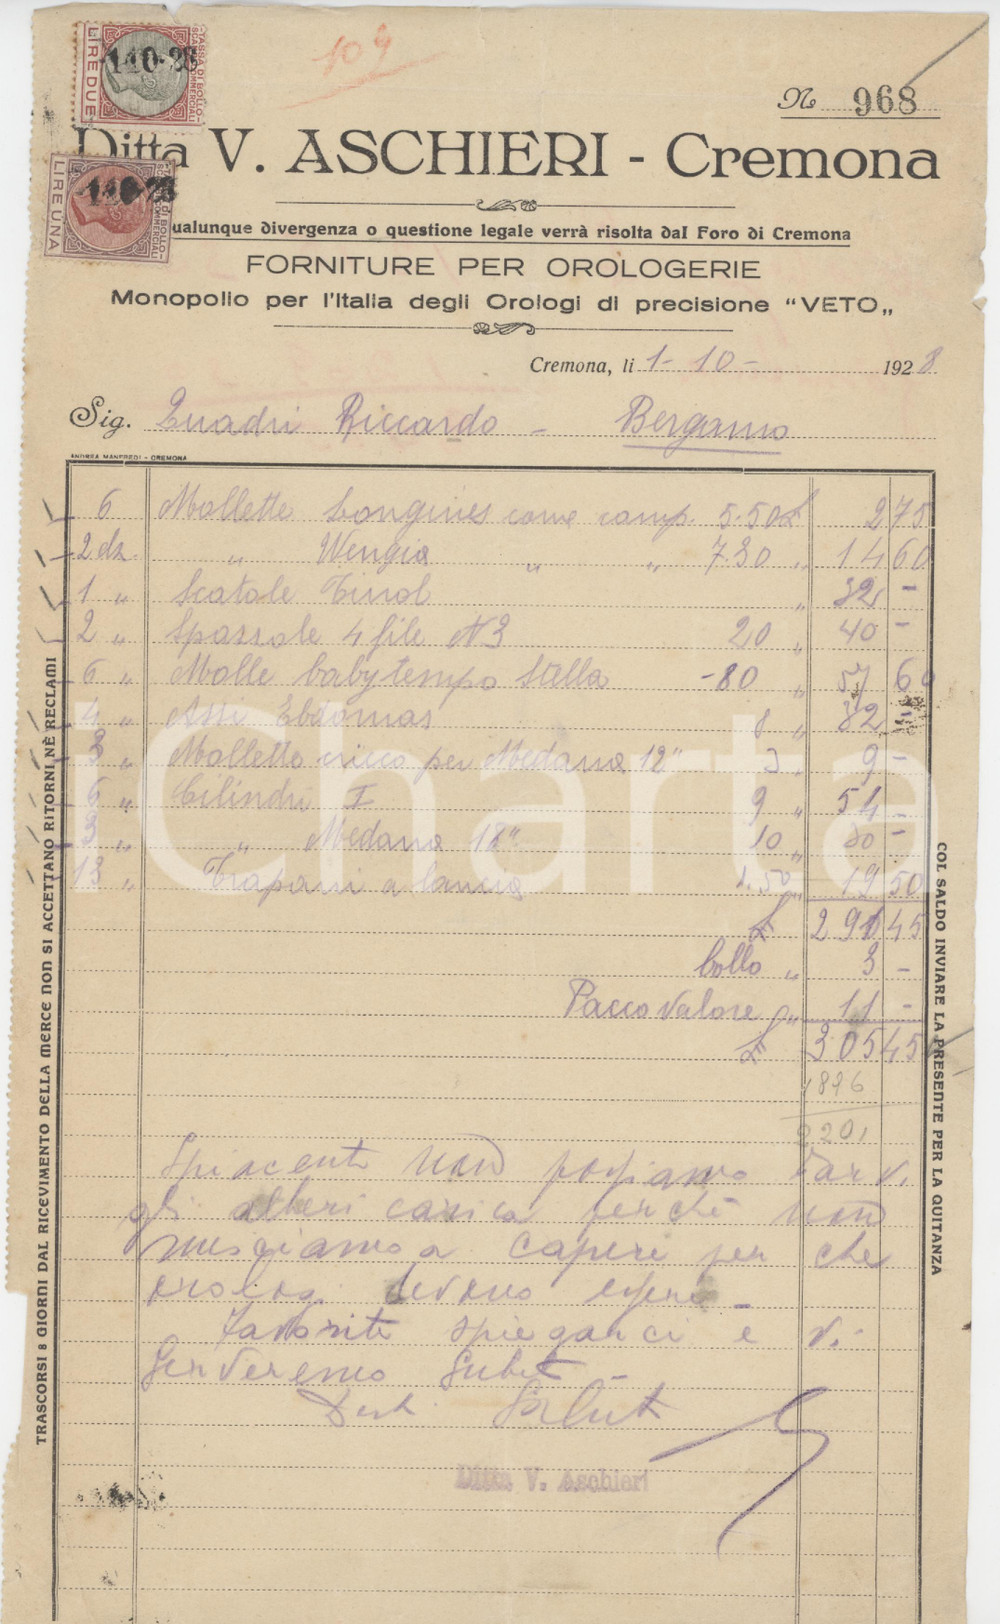 TASSA DI BOLLO
SCAMBI COMMERCIALI
LIRE DUE
1·10·28
109
N 968
Ditta V. ASCHIERI - Cremona
LIRE UNA
1·10·28
ualunque divergenza o questione legale verrà risolta dal Foro di Cremona
FORNITURE PER OROLOGERIE
Monopolio per l'Italia degli Orologi di precisione "VETO„
Cremona, li 1-10- 1928
Sig. Quadri Riccardo - Bergamo
ANDREA MANFREDI - CREMONA
6 Mollette Longines come camp. 5.50 £ 2 75
2 dz. „ Wengia „ „ 7.30 „ 14 60
1 „ Scatole Tinol „ 32 -
2 „ Spazzole 4 file N3 20 „ 40 -
6 „ Molle babytempo Stella -80 „ 57 60
4 „ Assi Ebdomas 8 „ 32 -
3 „ Mollette cricco per Medana 12''' 3 „ 9 -
6 „ Cilindri I 9 „ 54 -
3 „ „ Medana 18''' 10 „ 30 -
13 „ Trapani a lancia 1.50 „ 19 50
£ 291 45
bollo „ 3 -
Pacco valore „ 11 -
£ 305 45
1896
2201
Spiacenti non possiamo darvi
gli alberi carica perchè non
riusciamo a capire per che
orolog. devono essere -
Favorite spiegarci e vi
serviremo subito
Dist. Saluti
Ditta V. Aschieri
TRASCORSI 8 GIORNI DAL RICEVIMENTO DELLA MERCE NON SI ACCETTANO RITORNI NÈ RECLAMI
COL SALDO INVIARE LA PRESENTE PER LA QUITANZA
iCharta